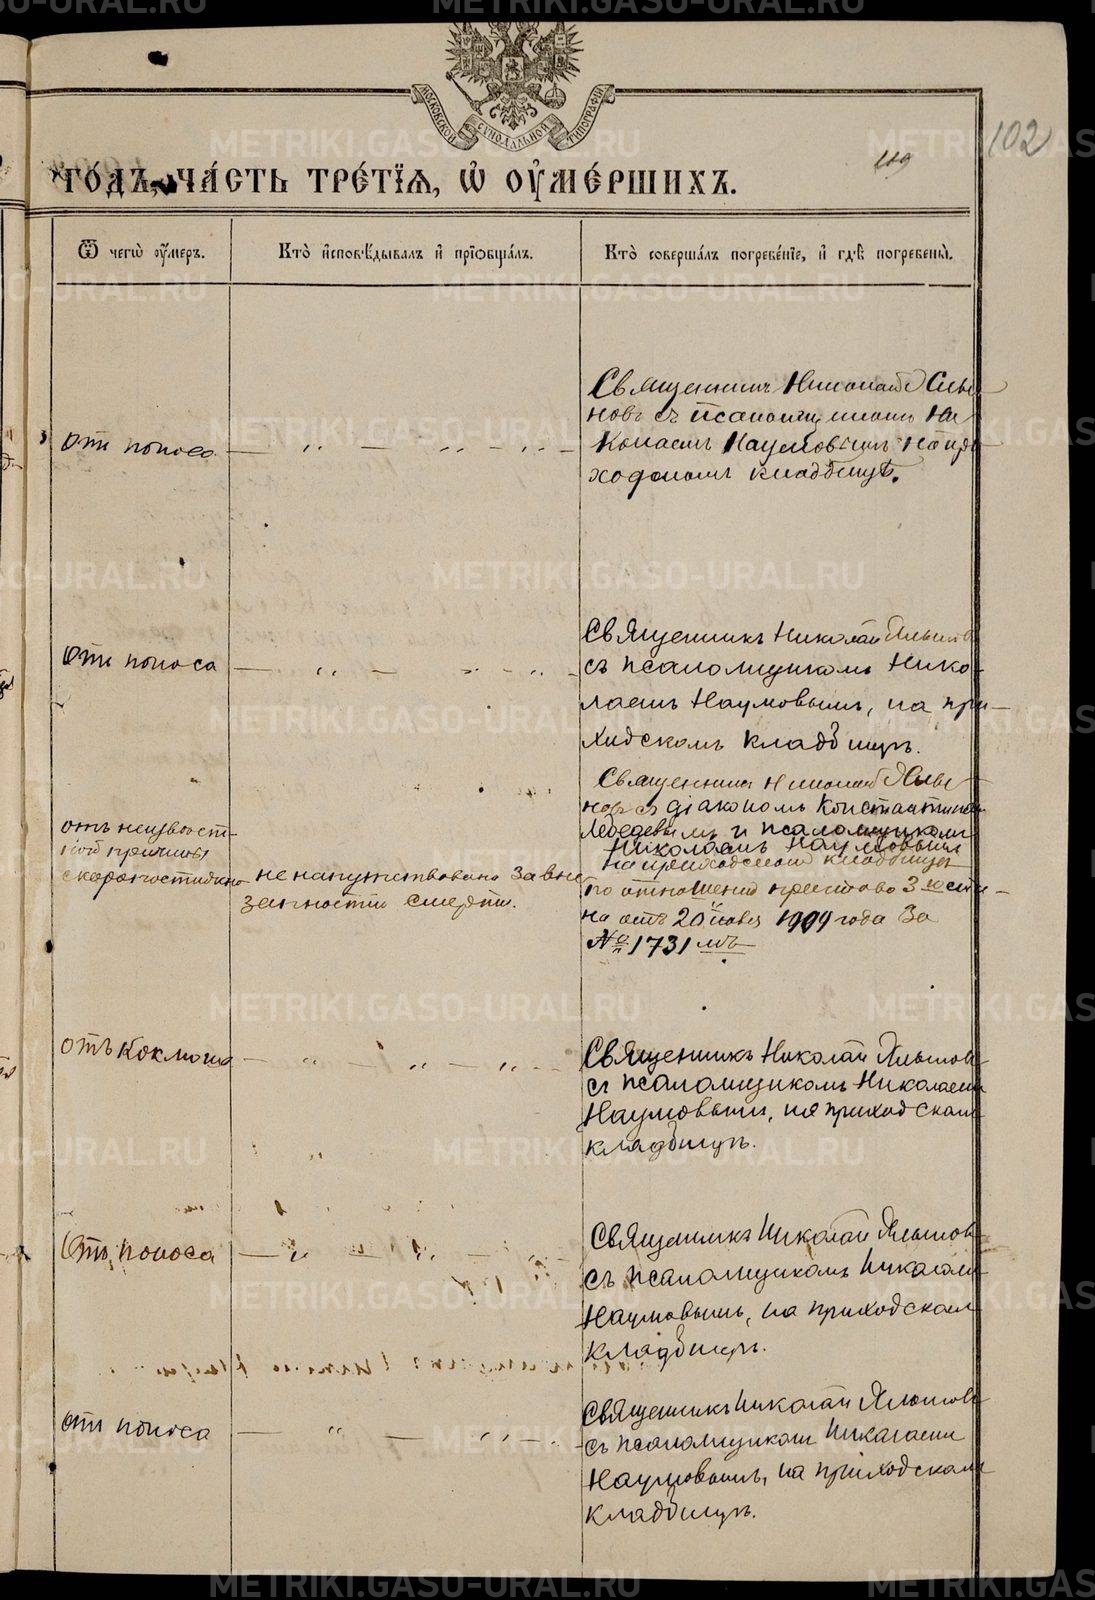 МОСКОВСКОЙ СѴНОДАЛЬНОЙ ТИПОГРАФІИ
102
119
го́дъ, ча́сть тре́тїѧ, ѡ҆ ᲂу҆ме́ршихъ.
Ѿ чегѡ̀ ᲂу҆́меръ.
Кто̀ и҆сповѣ́дывалъ и҆ прїѡбща́лъ.
Кто̀ соверша́лъ погребе́нїе, и҆ гдѣ̀ погребены̀.
отъ поноса
Священникъ Николай
новъ съ псаломщикомъ Ни
колаемъ Наумовымъ на при
ходскомъ кладбищѣ.
Отъ поноса
Священникъ Николай
съ псаломщикомъ Нико-
лаемъ Наумовымъ, на при-
ходскомъ кладбищѣ.
отъ неизвѣст-
ной причины
скоропостижно
не напутствована за вне
запностію смерти.
Священникъ Николай
новъ съ діакономъ Константиномъ
Лебедевымъ и псаломщикомъ
Николаемъ Наумовымъ
на приходскомъ кладбищѣ
по отношенію пристава 3го ста-
на отъ 20 1909 года за
№ 1731мъ
отъ коклюша
Священникъ Николай
съ псаломщикомъ Николаемъ
Наумовымъ, на приходскомъ
кладбищѣ.
Отъ поноса
Священникъ Николай
съ псаломщикомъ Николаемъ
Наумовымъ, на приходскомъ
кладбищѣ.
отъ поноса
Священникъ Николай
съ псаломщикомъ Николаемъ
Наумовымъ, на приходскомъ
кладбищѣ.
METRIKI.GASO-URAL.RU